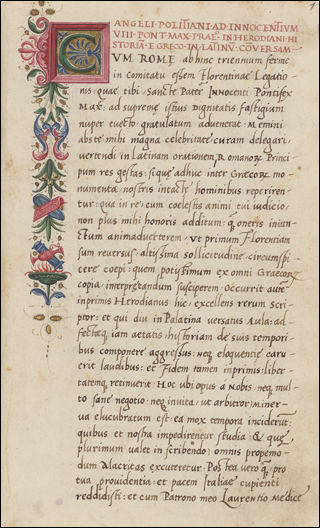 ANGELI POLITIANI AD INNOCENTIVM
VIII PONT MAX PRAEF IN HERODIANI HI
STORIA E GRECO IN LATINV COVERSAM
CVM ROMĘ abhinc triennium ferme
in comitatu essem Florentinae Legatio
nis: quae tibi Sancte Pater INnocenti Pontifex
Max: ad supreme istius Dignitatis fastigium
nuper euecto gratulatum aduenerat: Memini
abs te mihi magna celebritate curam delegari
uertendi in Latinam orationem, Romanorum Princi
pum res gestas: si quae adhuc inter Graecorum mo
numenta nostris intactę hominibus reperiren
tur: qua in re cum coelestis animi tui iudicio
non plus mihi honoris additum: quam oneris iniun
ctum animaduerterem: ut primum Florentiam
sum reuersus: altissima sollicitudine circunspi
cere coepi: quem potissimum ex omni Graecorum
copia, interpretandum susciperem: Occurrit autem
inprimis Herodianus hic, excellens rerum Scri
ptor: et qui diu in Palatina uersatus Aula: ad
fectaeque iam aetatis: historiam de suis tempori
bus componere aggressus: neque eloquentię caru
erit laudibus: et Fidem tamen inprimis: liber
tatemque retinuerit: Hoc ubi opus a Nobis: neque mul
to sane negotio: neque inuita, ut arbitror, Miner
ua elucubratum est: ea mox tempora inciderunt:
quibus et nostra impedirentur studia: & quę
plurimum ualet in scribendo: omnis propemo
dum Alacritas excuteretur. Postea uero quam pro
tua prouidentia: et pacem Italiae cupienti
reddidisti: et cum Patrono meo Laurentio Medice